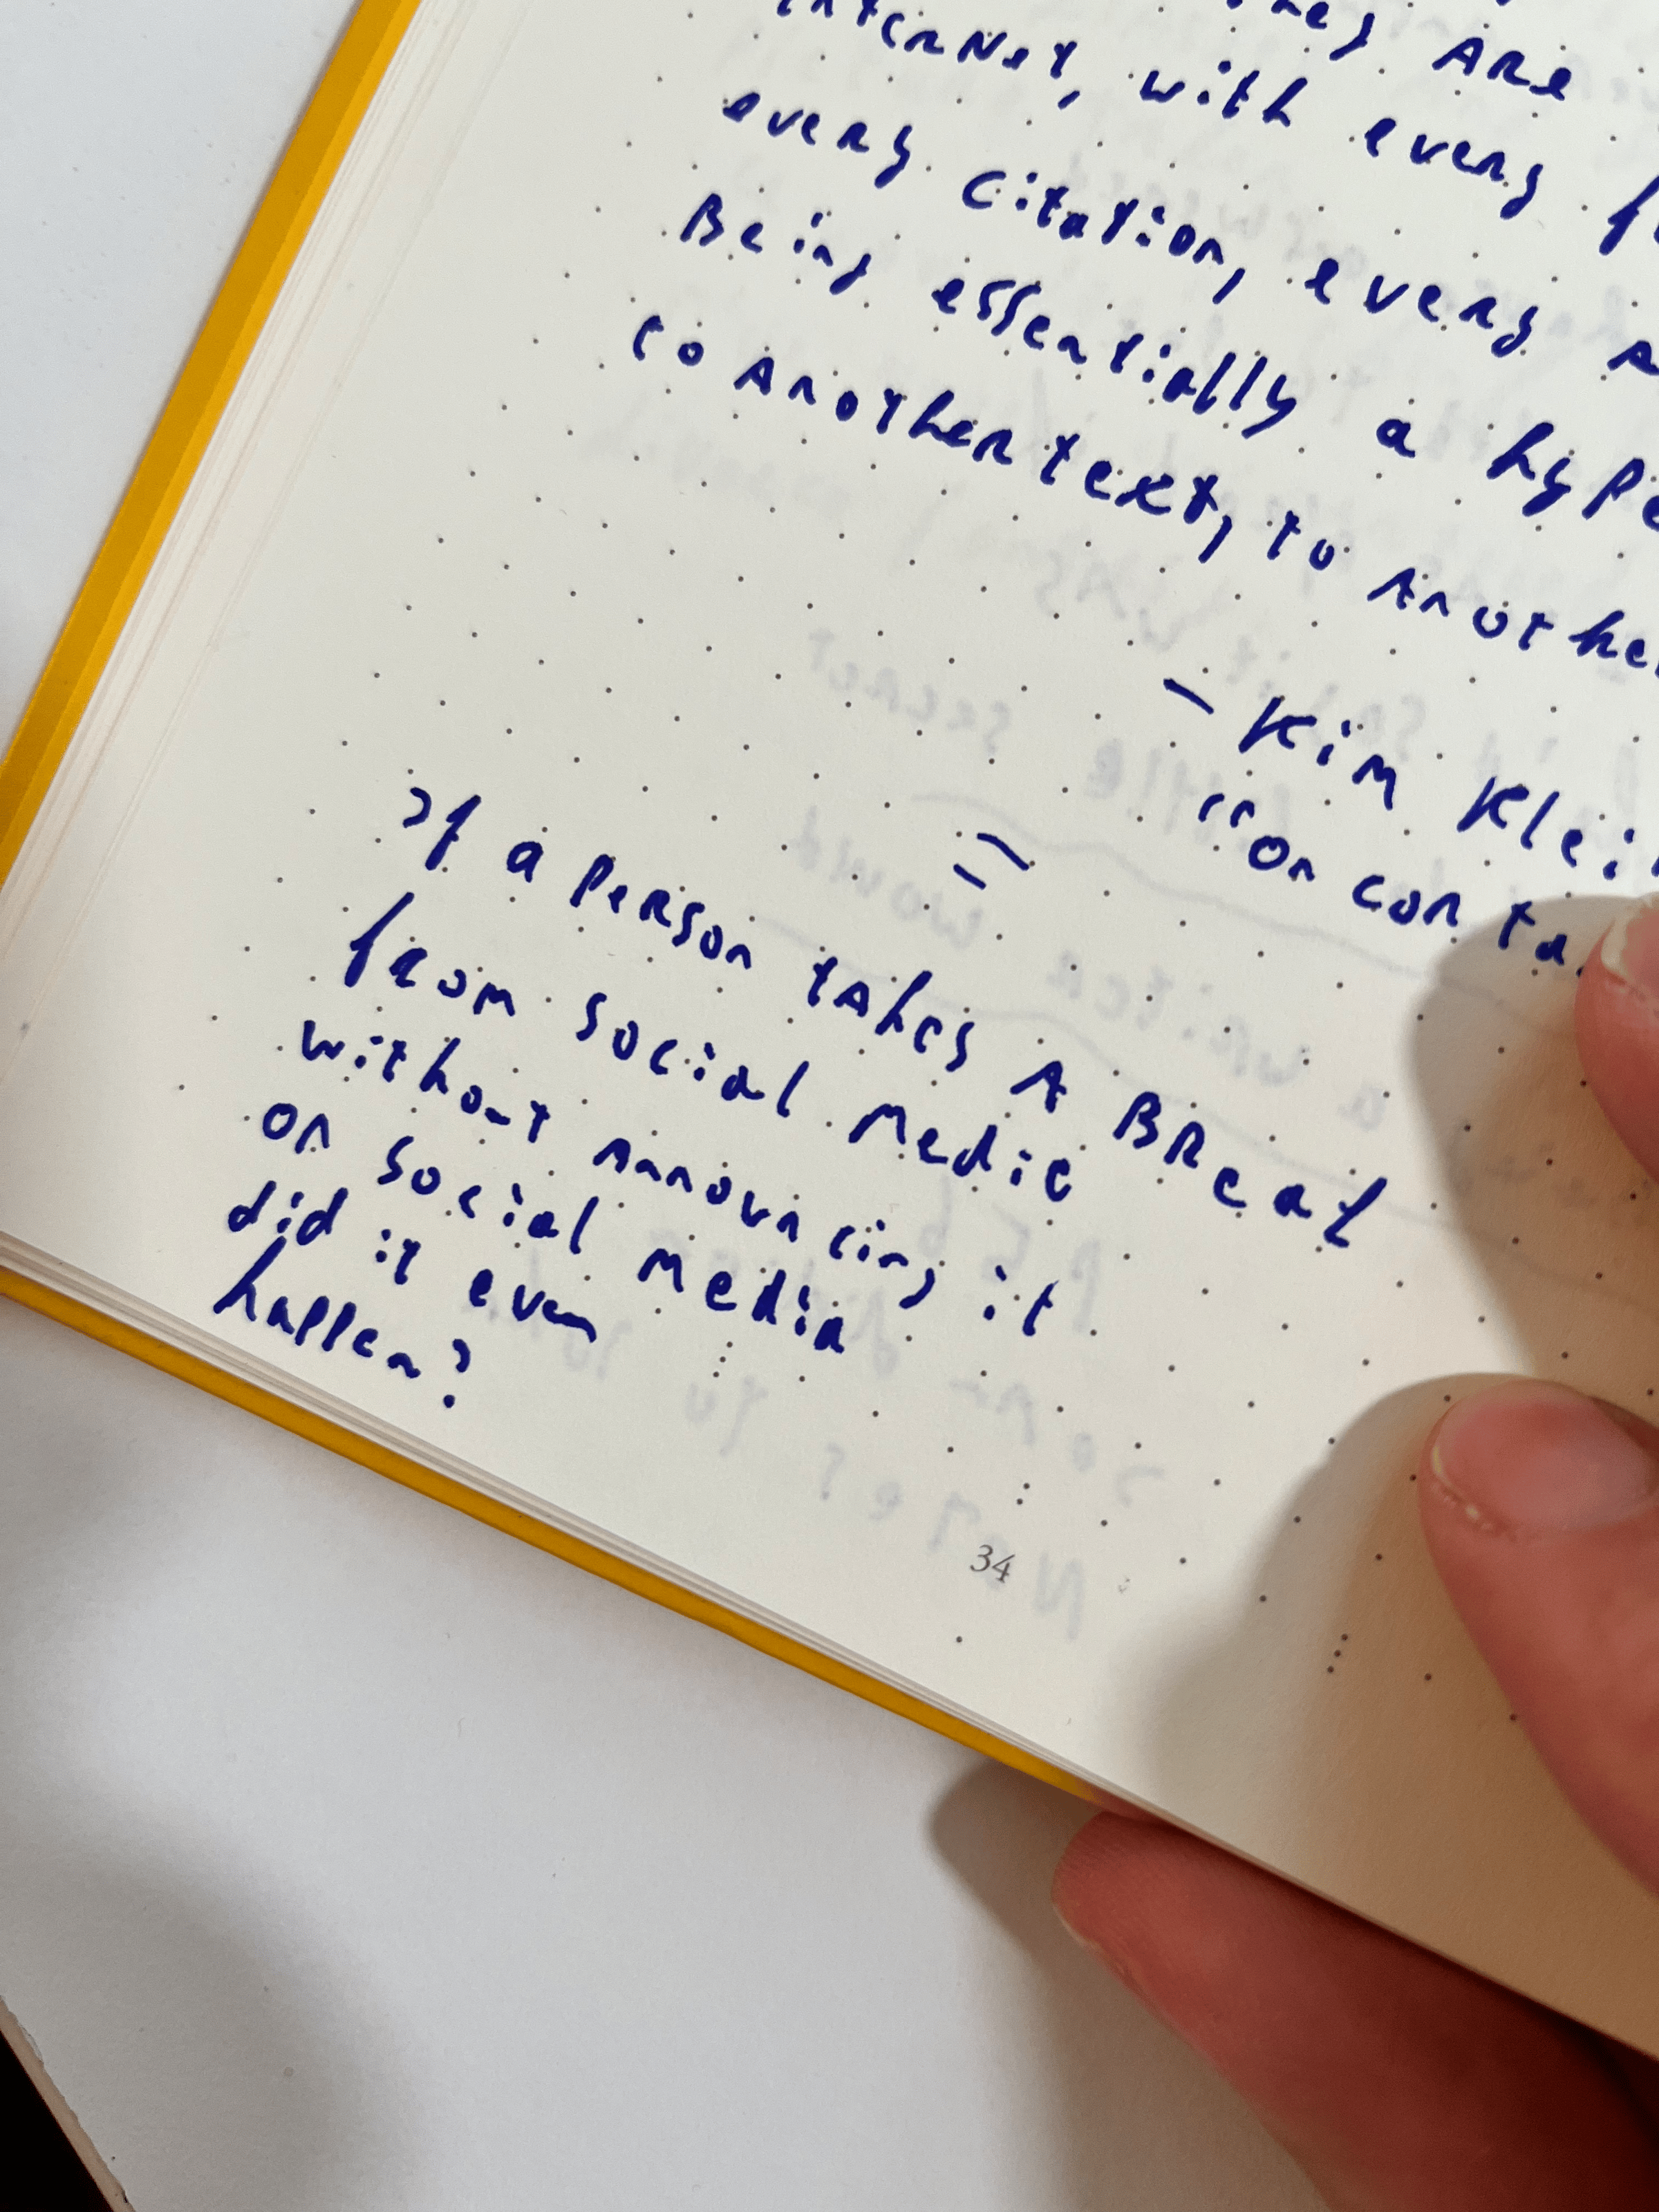 ARE
INterNet, with every
every citation, every
Being essentially a hype
to Another text, to Anothe
- Kim Klei
"On conta
If a person takes A BReak
from social Media
without Announcing it
on social Media
did it even
happen?
34